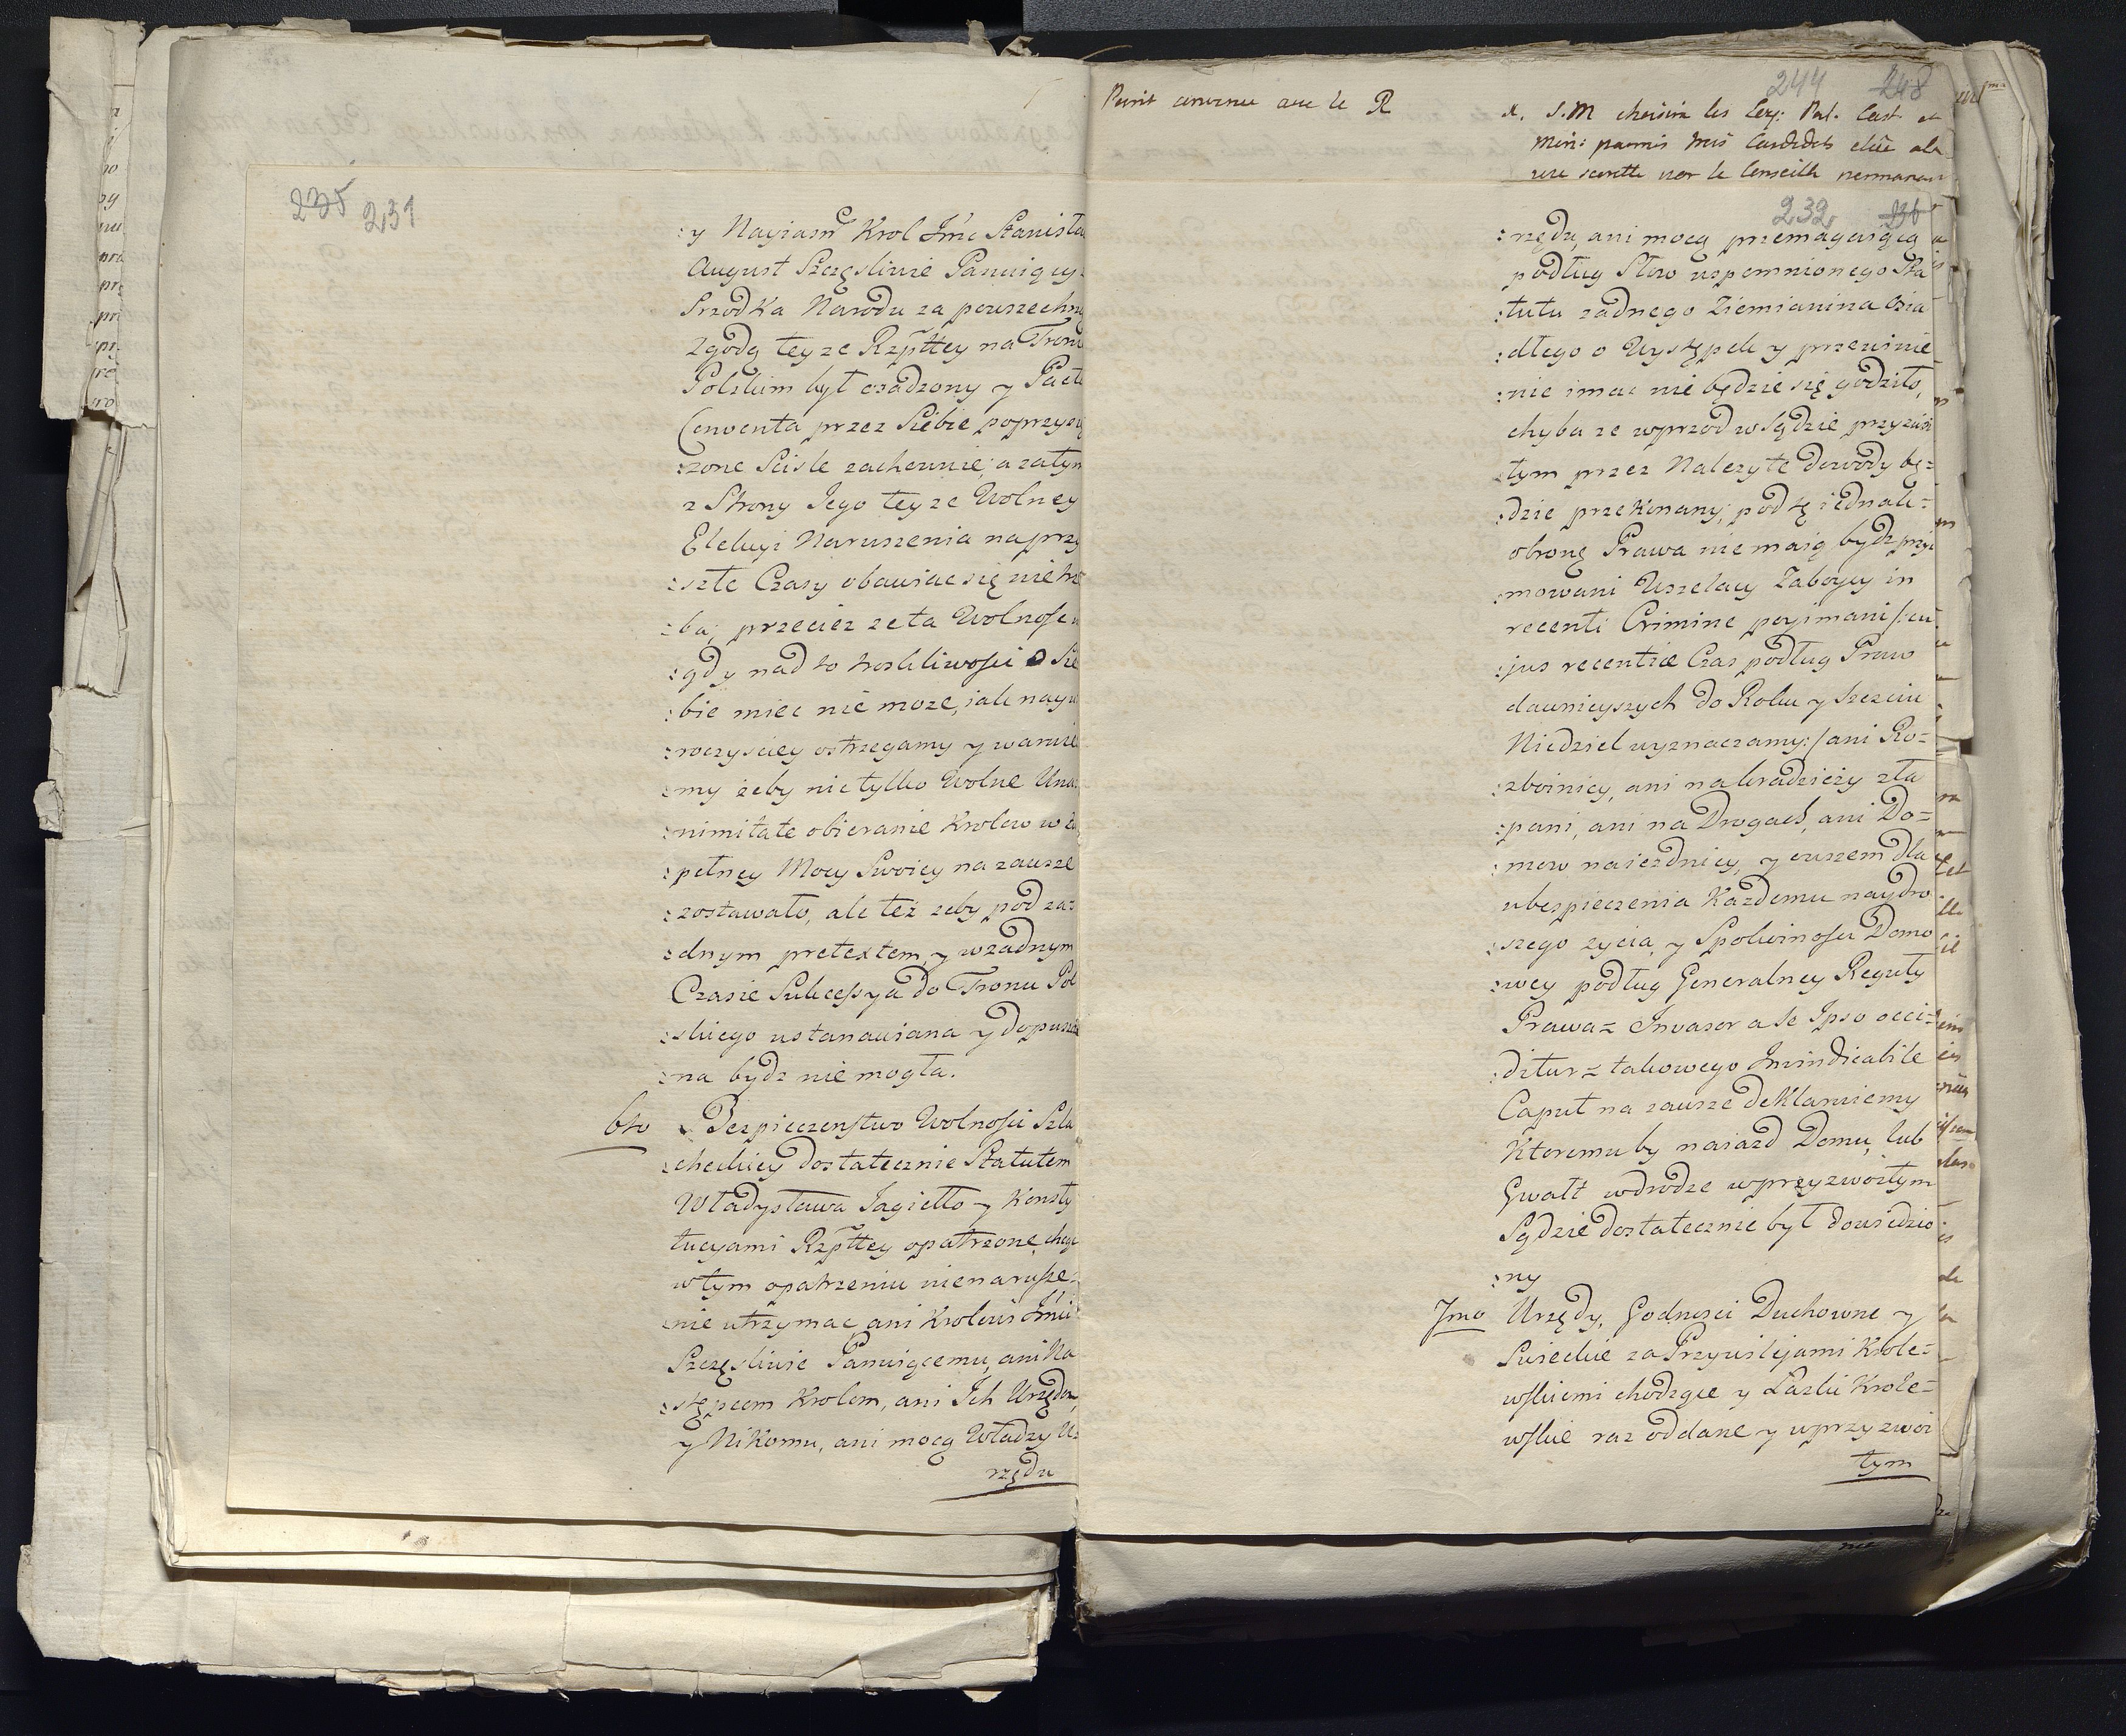 235 231
: y Nayiasn Krol Jmc Stanisła
August Szczęsliwie Panuiący
Srzodka Narodu za powszechną
zgodą teyze Rzpltey na Tron
Polskim był osadzony y Pacta
Conventa przez Siebie poprzysię
:zone Scisle zachowuie; a zatym
z Strony Jego teyze Wolney
Elekcyi Naruszenia na przy
:szłe Czasy obawiac się nie trze
:ba; przecież ze ta Wolnosc
:gdy nad to troskliwosci o Sie
:bie miec nie moze, iak nayu
:roczysciey ostrzegamy y waruie
:my żeby nie tylko Wolne Una
:nimitate obieranie Krolow w zu
:pełney Mocy Swoiey na zawsze
:zostawało, ale też zeby pod za:
:dnym pretextem, y w zadnym
Czasie Sukcessya do Tronu Pol
:skiego ustanawiana y dopuszczo
:na bydz nie mogła.
6to Bezpieczenstwo Wolnosci Szla
:checkiey dostatecznie Statutem
Władysława Jagiełło y Konsty
tucyami Rzpltey opatrzone, chcąc
w tym opatrzeniu nienarusze:
:nie utrzymac, ani Krolowi Jmci
Szczęsliwie Panuiącemu, ani Na
:stępcom Krolom, ani Ich Urzędom,
y Nikomu, ani mocą Władzy U:
rzędu
244 248
Point convenu avec le R
x. S.M choisira les Eveq: Pal. Cast. et
Min: parmis trois Candidats elûe a la
232 236
:rzędu, ani mocą przemagaiącą
podług Słow wspomnionego Sta
:tutu zadnego Ziemianina Osia
:dłego o Występek y przewinie
:nie imac nie będzie się godziło,
chyba ze wprzod w Sądzie przyzwoi
:tym przez Nalezyte dowody bę=
:dzie przekonany; pod tę iednak=
obronę Prawa nie maią bydz przy
:mowani Wszelacy Zaboycy in
recenti Crimine poyimani /:cu
:jus recentiæ Czas podług Praw
dawnieyszych do Roku y szesciu
Niedziel wyznaczamy:/ ani Ro=
:zboinicy, ani na kradzieży zła
:pani, ani na Drogach, ani Do=
:mow naiezdnicy, y owszem dla
ubespieczenia Każdemu naydro
:szego zycia, y Spokoinosci Domo
:wey podług Generalney Reguły
Prawa = Invasor a se Ipso occi=
:ditur = takowego Invindicabile
Caput na zawsze deklaruiemy
Ktoremu by naiazd Domu, lub
Gwałt w drodze w przyzwoitym
Sądzie dostatecznie był dowiedzio
:ny
7mo Urzędy, Godnosci Duchowne y
Swieckie za Przywileiami Krole=
wskiemi chodzące y Łaski Krole=
wskie raz oddane y w przyzwoi
tym